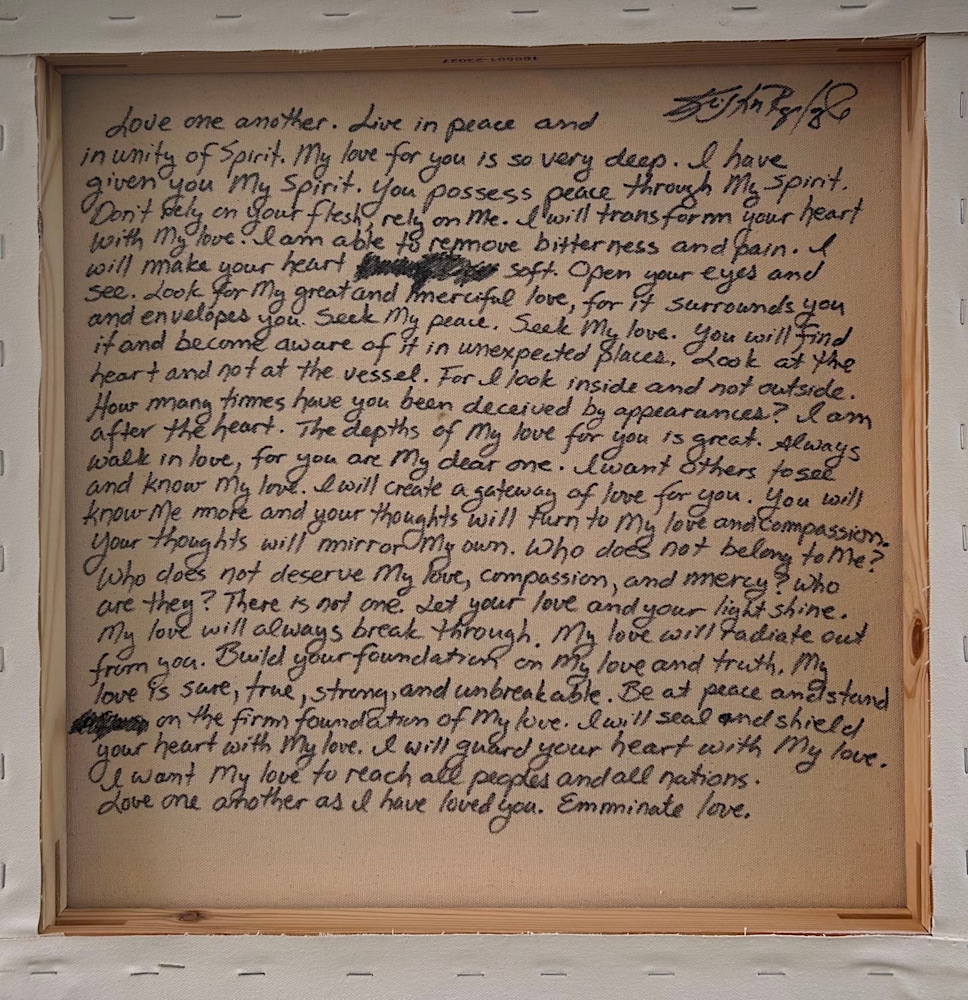 Love one another. Live in peace and
in unity of Spirit. My love for you is so very deep. I have
given you My Spirit. You possess peace through My Spirit.
Don't rely on your flesh, rely on Me. I will transform your heart
with My love. I am able to remove bitterness and pain. I
will make your heart soft. Open your eyes and
see. Look for My great and merciful love, for it surrounds you
and envelopes you. Seek My peace. Seek My love. You will find
it and become aware of it in unexpected places. Look at the
heart and not at the vessel. For I look inside and not outside.
How many times have you been deceived by appearances? I am
after the heart. The depths of My love for you is great. Always
walk in love, for you are My dear one. I want others to see
and know My love. I will create a gateway of love for you. You will
know Me more and your thoughts will turn to My love and compassion.
Your thoughts will mirror My own. Who does not belong to Me?
Who does not deserve My love, compassion, and mercy? Who
are they? There is not one. Let your love and your light shine.
My love will always break through. My love will radiate out
from you. Build your foundation on My love and truth. My
love is sure, true, strong, and unbreakable. Be at peace and stand
on the firm foundation of My love. I will seal and shield
your heart with My love. I will guard your heart with My love.
I want My love to reach all peoples and all nations.
Love one another as I have loved you. Emminate love.